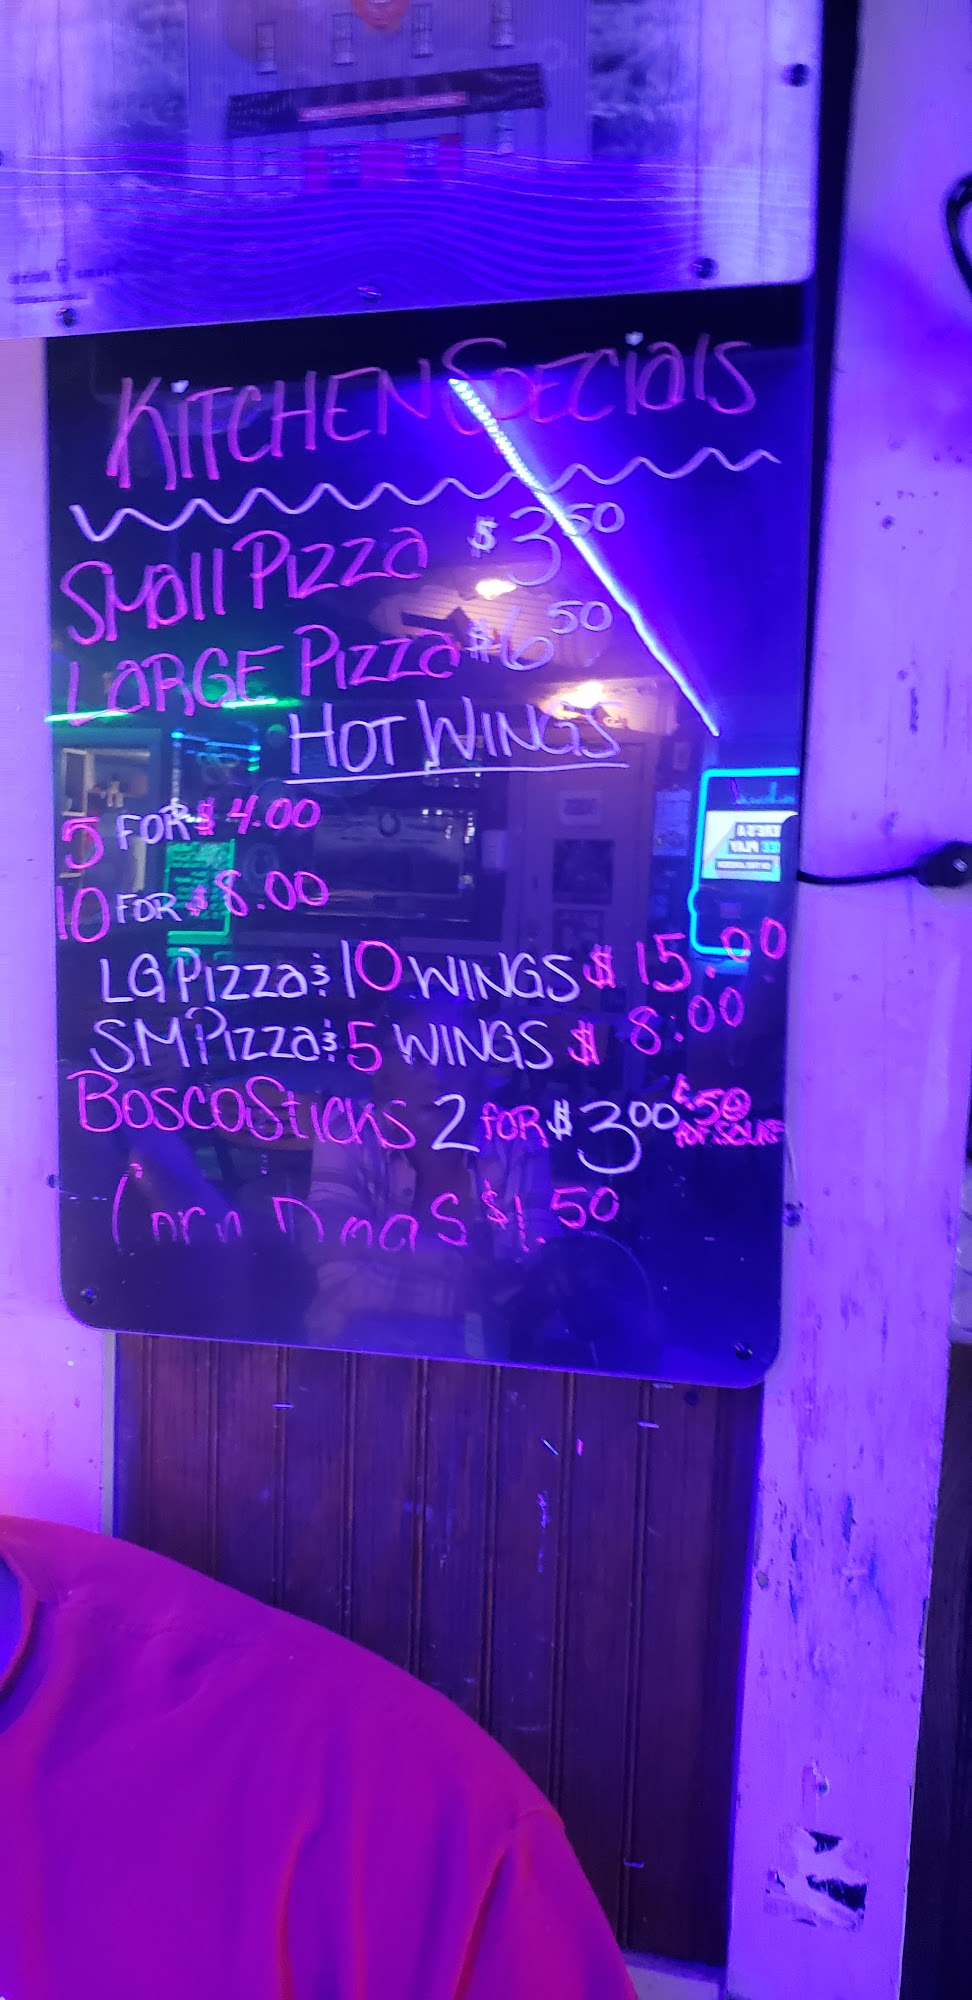 KITCHEN SPECIALS
Small Pizza $3.50
LARGE Pizza $6.50
HOT WINGS
5 FOR $4.00
10 FOR $8.00
LG Pizza & 10 WINGS $15.00
SM Pizza & 5 WINGS $8.00
BOSCO STICKS 2 FOR $3.00 & .50 FOR SAUCE
Corn DOGS $1.50